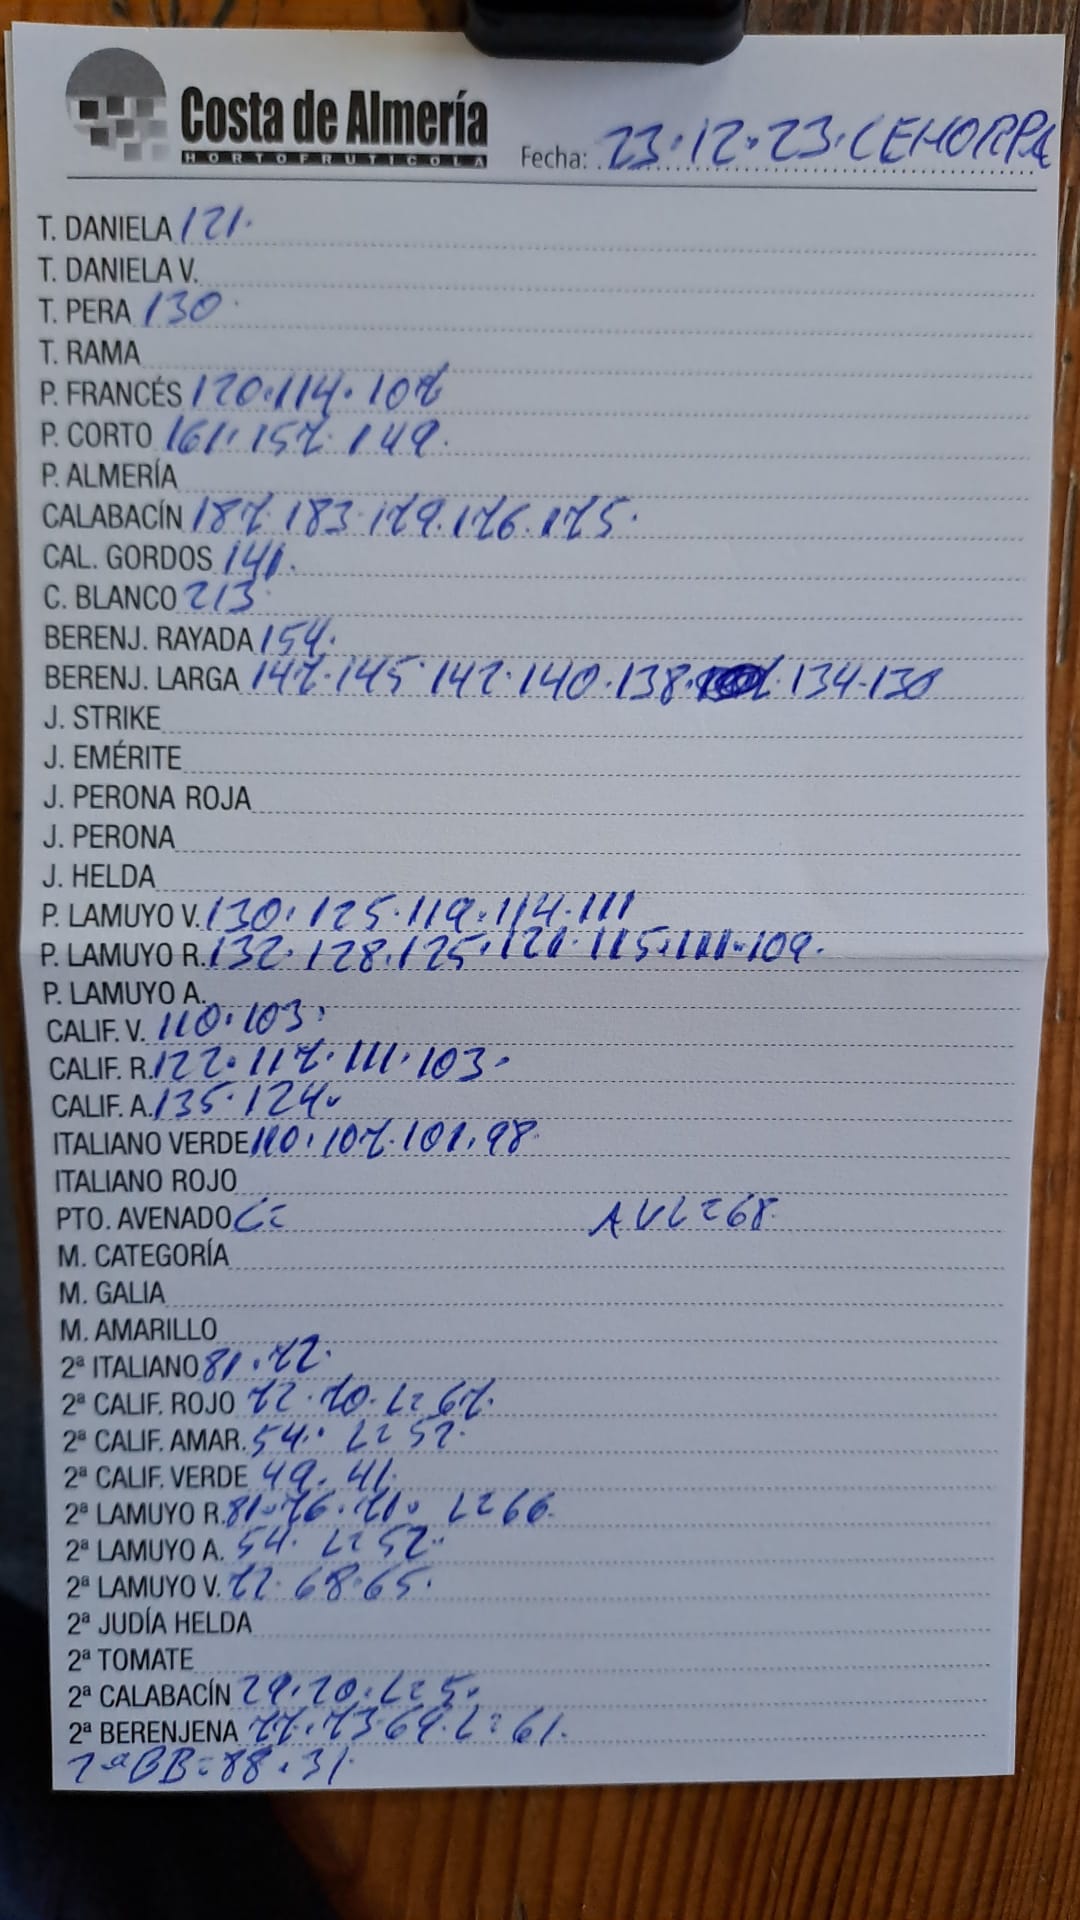 Costa de Almería
HORTOFRUTICOLA
Fecha: 23.12.23. CEHORPA
T. DANIELA 121.
T. DANIELA V.
T. PERA 130.
T. RAMA
P. FRANCÉS 120.114.107
P. CORTO 161.157.149.
P. ALMERÍA
CALABACÍN 187.183.179.176.175.
CAL. GORDOS 141.
C. BLANCO 213
BERENJ. RAYADA 154.
BERENJ. LARGA 147.145.142.140.138. 134.130
J. STRIKE
J. EMÉRITE
J. PERONA ROJA
J. PERONA
J. HELDA
P. LAMUYO V. 130.125.119.114.111
P. LAMUYO R. 132.128.125.121.115.111.109.
P. LAMUYO A.
CALIF. V. 110.103.
CALIF. R. 122.117.111.103.
CALIF. A. 135.124.
ITALIANO VERDE 110.107.101.98.
ITALIANO ROJO
PTO. AVENADO L= AVL=68.
M. CATEGORÍA
M. GALIA
M. AMARILLO
2ª ITALIANO 81.72.
2ª CALIF. ROJO 72.70.L=67.
2ª CALIF. AMAR. 54. L=52.
2ª CALIF. VERDE 49.41.
2ª LAMUYO R. 81.76.71. L=66.
2ª LAMUYO A. 54. L=52.
2ª LAMUYO V. 72.68.65.
2ª JUDÍA HELDA
2ª TOMATE
2ª CALABACÍN 29.20.L=5.
2ª BERENJENA 77.73.69.L=61.
2ªBB=88.31.